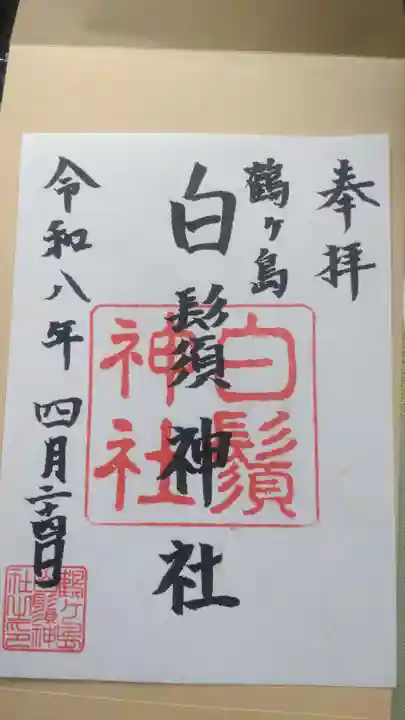 奉拝
鶴ヶ島
白鬚神社
白鬚神社
令和八年 四月二十四日
鶴ヶ島白鬚神社之印